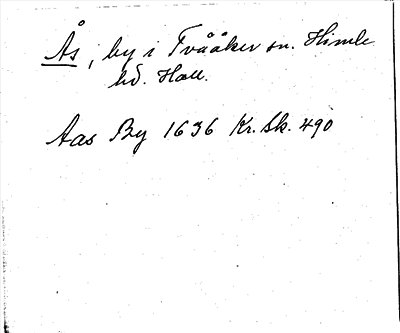 Ås, by i Tvååker sn. Himle
hd. Hall.
Aas By 1636 Kr. Sk. 490